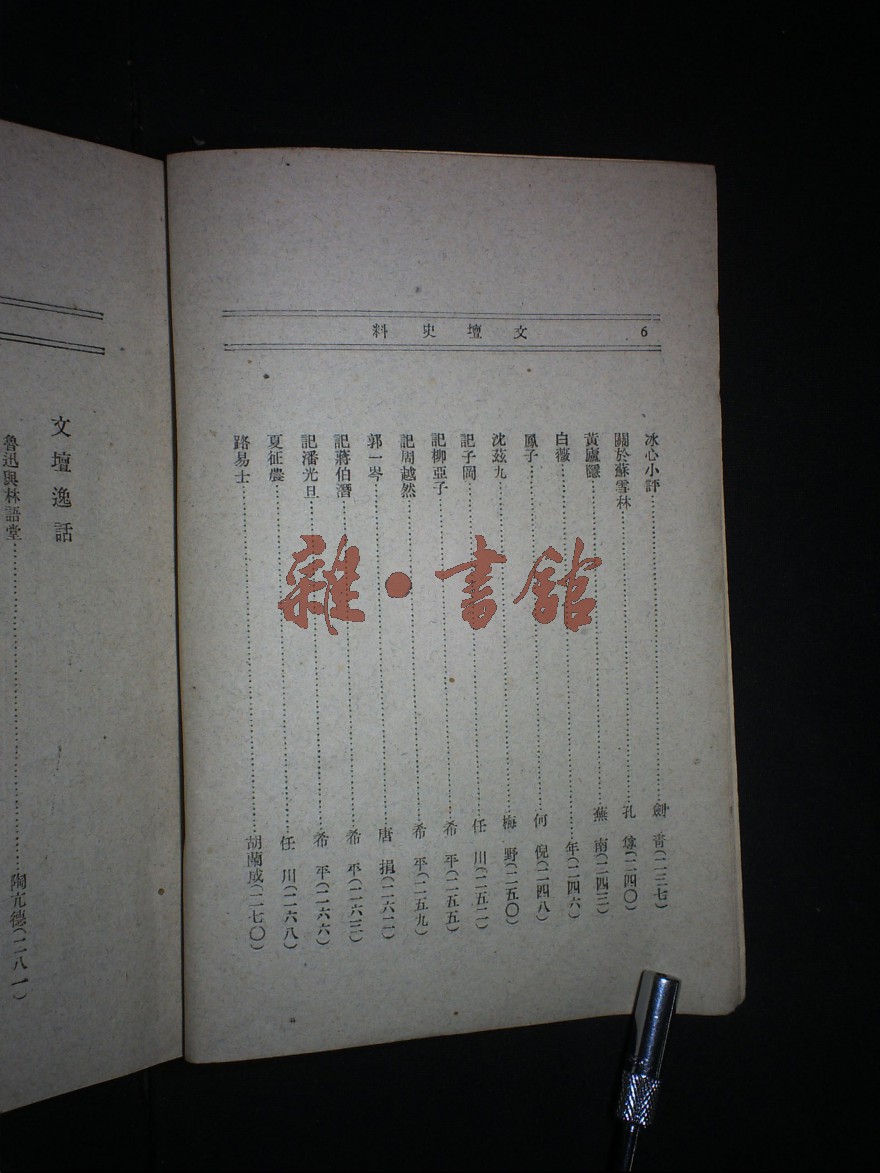 文壇史料 6
冰心小評……劍青(二三七)
關於蘇雪林……孔(二四〇)
黃廬隱……蕪南(二四三)
白薇……年(二四六)
鳳子……何倪(二四八)
沈茲九……梅野(二五〇)
記子岡……任川(二五二)
記柳亞子……希平(二五五)
記周越然……希平(二五九)
郭一岑……唐捐(二六二)
記蔣伯潛……希平(二六三)
記潘光旦……希平(二六六)
夏征農……任川(二六八)
路易士……胡蘭成(二七〇)
文壇逸話
魯迅與林語堂……陶亢德(二八一)
雜·書館